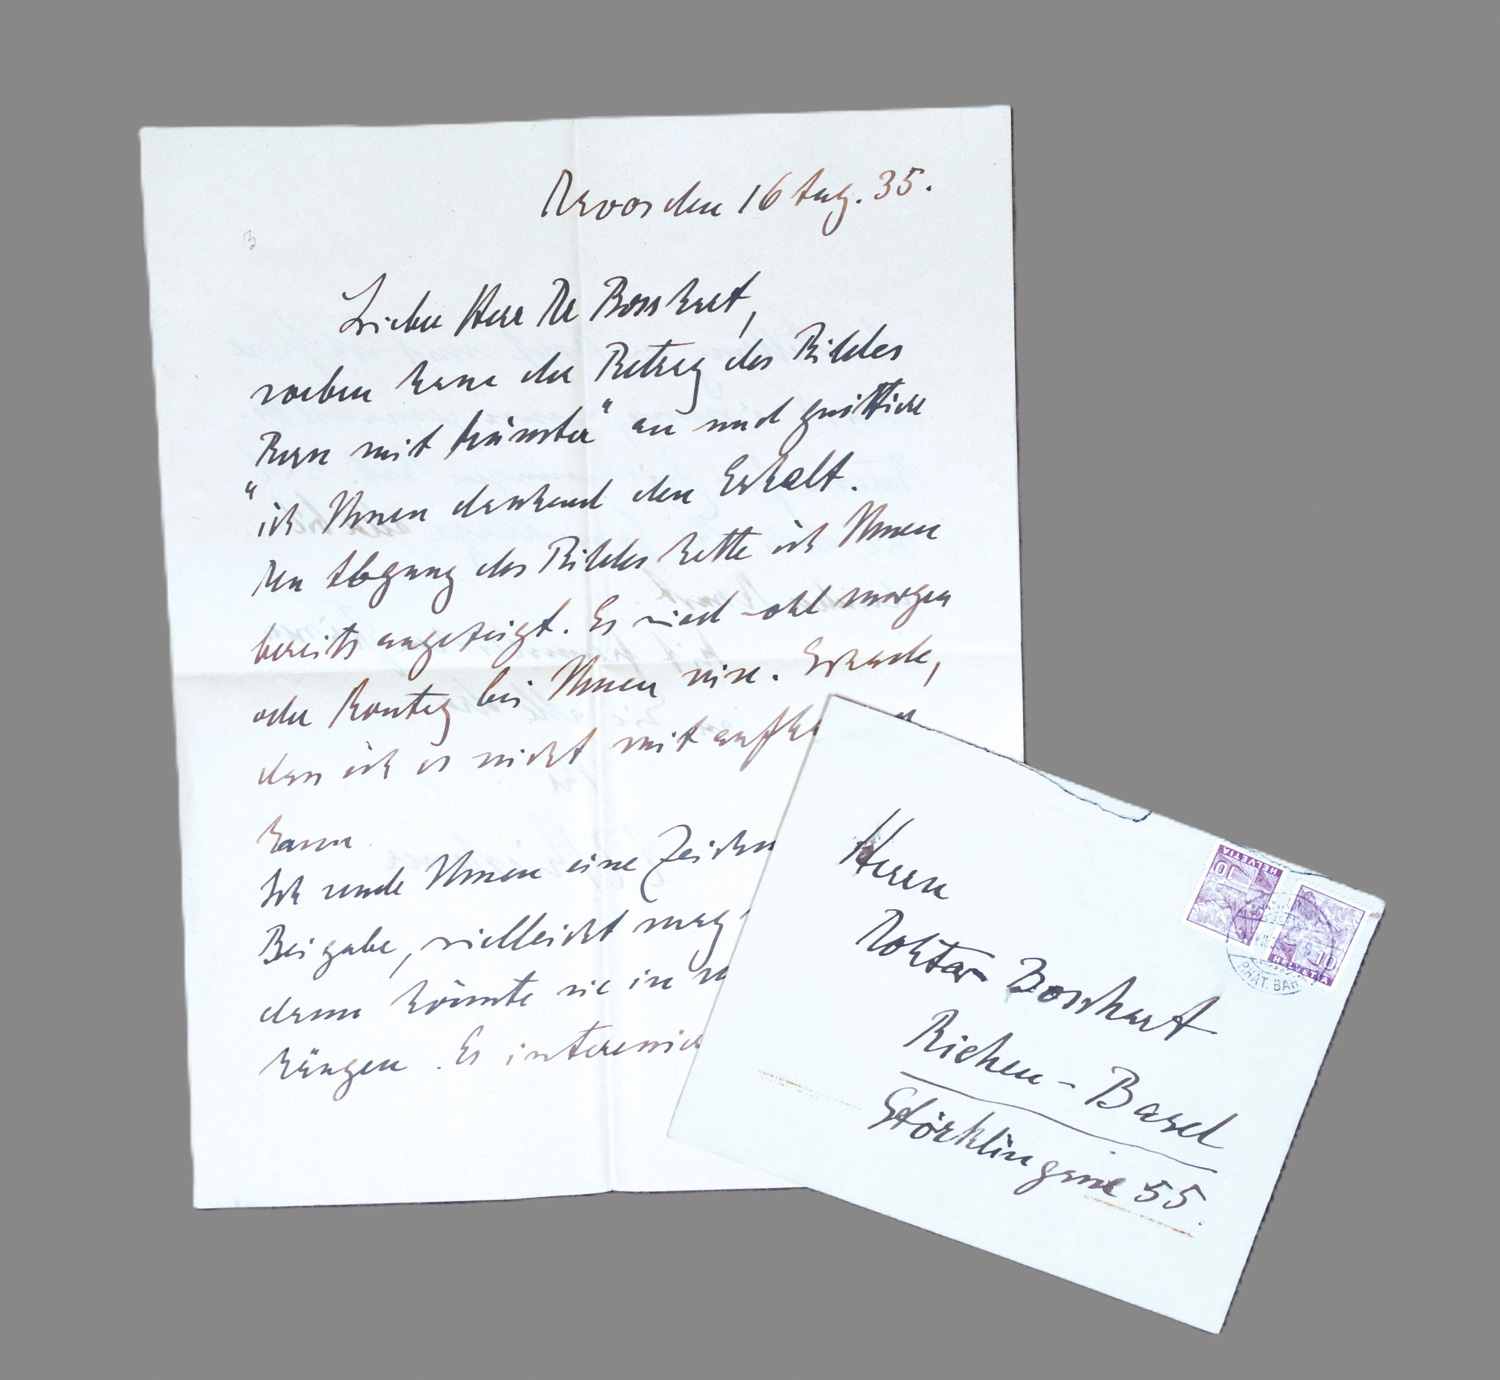 Davos den 16 Aug. 35.
Lieber Herr Dr Bosshart,
soeben kam der Betrag des Bildes
Bern mit Münster" an und quittiere
" ich Ihnen dankend den Erhalt.
Den Abgang des Bildes hatte ich Ihnen
bereits angezeigt. Es wird wohl morgen
oder Montag bei Ihnen sein. Schade,
dass ich es nicht mit aufhä
kann.
Ich sende Ihnen eine Zeichn
Beigabe, vielleicht mag
dann könnte sie in
hängen. Es interessie
Herrn
Doktor Bosshart
Riehen-Basel
Störklingasse 55.
HELVETIA
10
HELVETIA
10
RHÄT. BAH